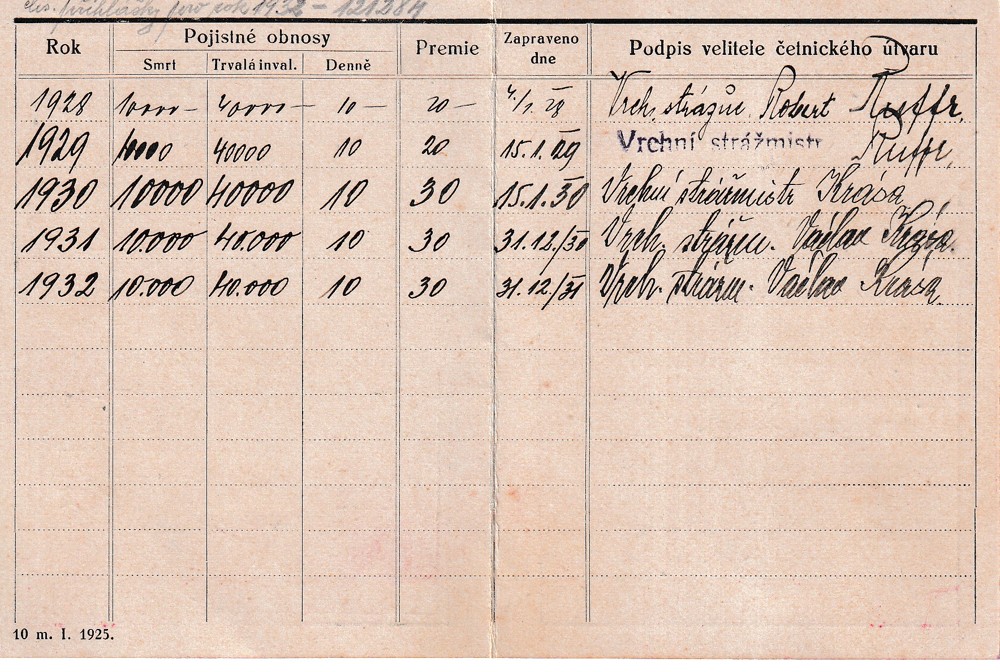 čís. přihlášky pro rok 1932 - 121284
Rok Pojistné obnosy Premie Zapraveno dne Podpis velitele četnického útvaru
Smrt Trvalá inval. Denně
1928 10000 - 40000 - 10 - 20 - Vrch. strážm. Robert Ruffr.
1929 10000 40000 10 20 15.1.29 Vrchní strážmistr Ruffr,
1930 10000 40000 10 30 15.1.30 Vrchní strážmistr Krása
1931 10.000 40.000 10 30 31.12./30 Vrch. strážm. Václav Krása.
1932 10.000 40.000 10 30 31.12/31 Vrch. strážm. Václav Krása.
10 m. I. 1925.